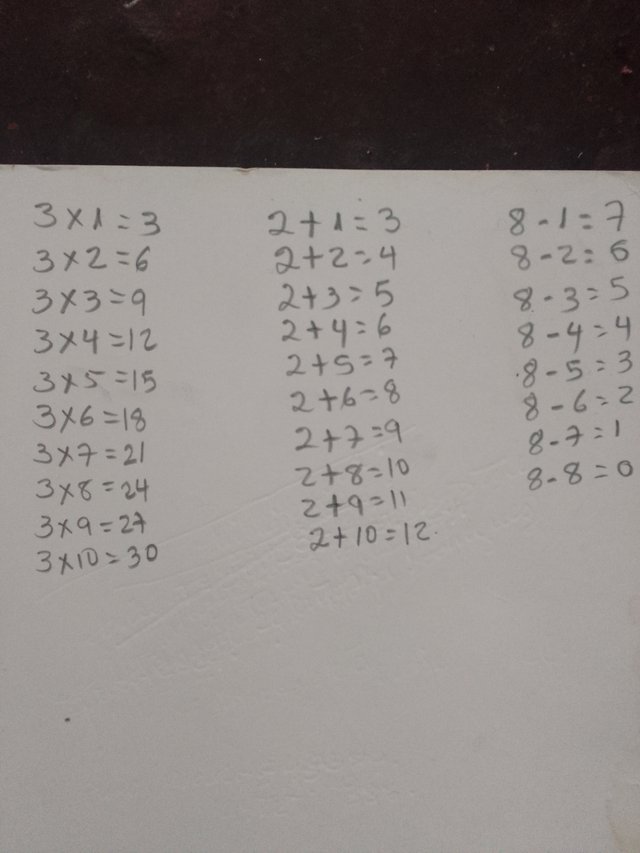 3 x 1 = 3
3 x 2 = 6
3 x 3 = 9
3 x 4 = 12
3 x 5 = 15
3 x 6 = 18
3 x 7 = 21
3 x 8 = 24
3 x 9 = 27
3 x 10 = 30
2 + 1 = 3
2 + 2 = 4
2 + 3 = 5
2 + 4 = 6
2 + 5 = 7
2 + 6 = 8
2 + 7 = 9
2 + 8 = 10
2 + 9 = 11
2 + 10 = 12.
8 - 1 = 7
8 - 2 = 6
8 - 3 = 5
8 - 4 = 4
8 - 5 = 3
8 - 6 = 2
8 - 7 = 1
8 - 8 = 0